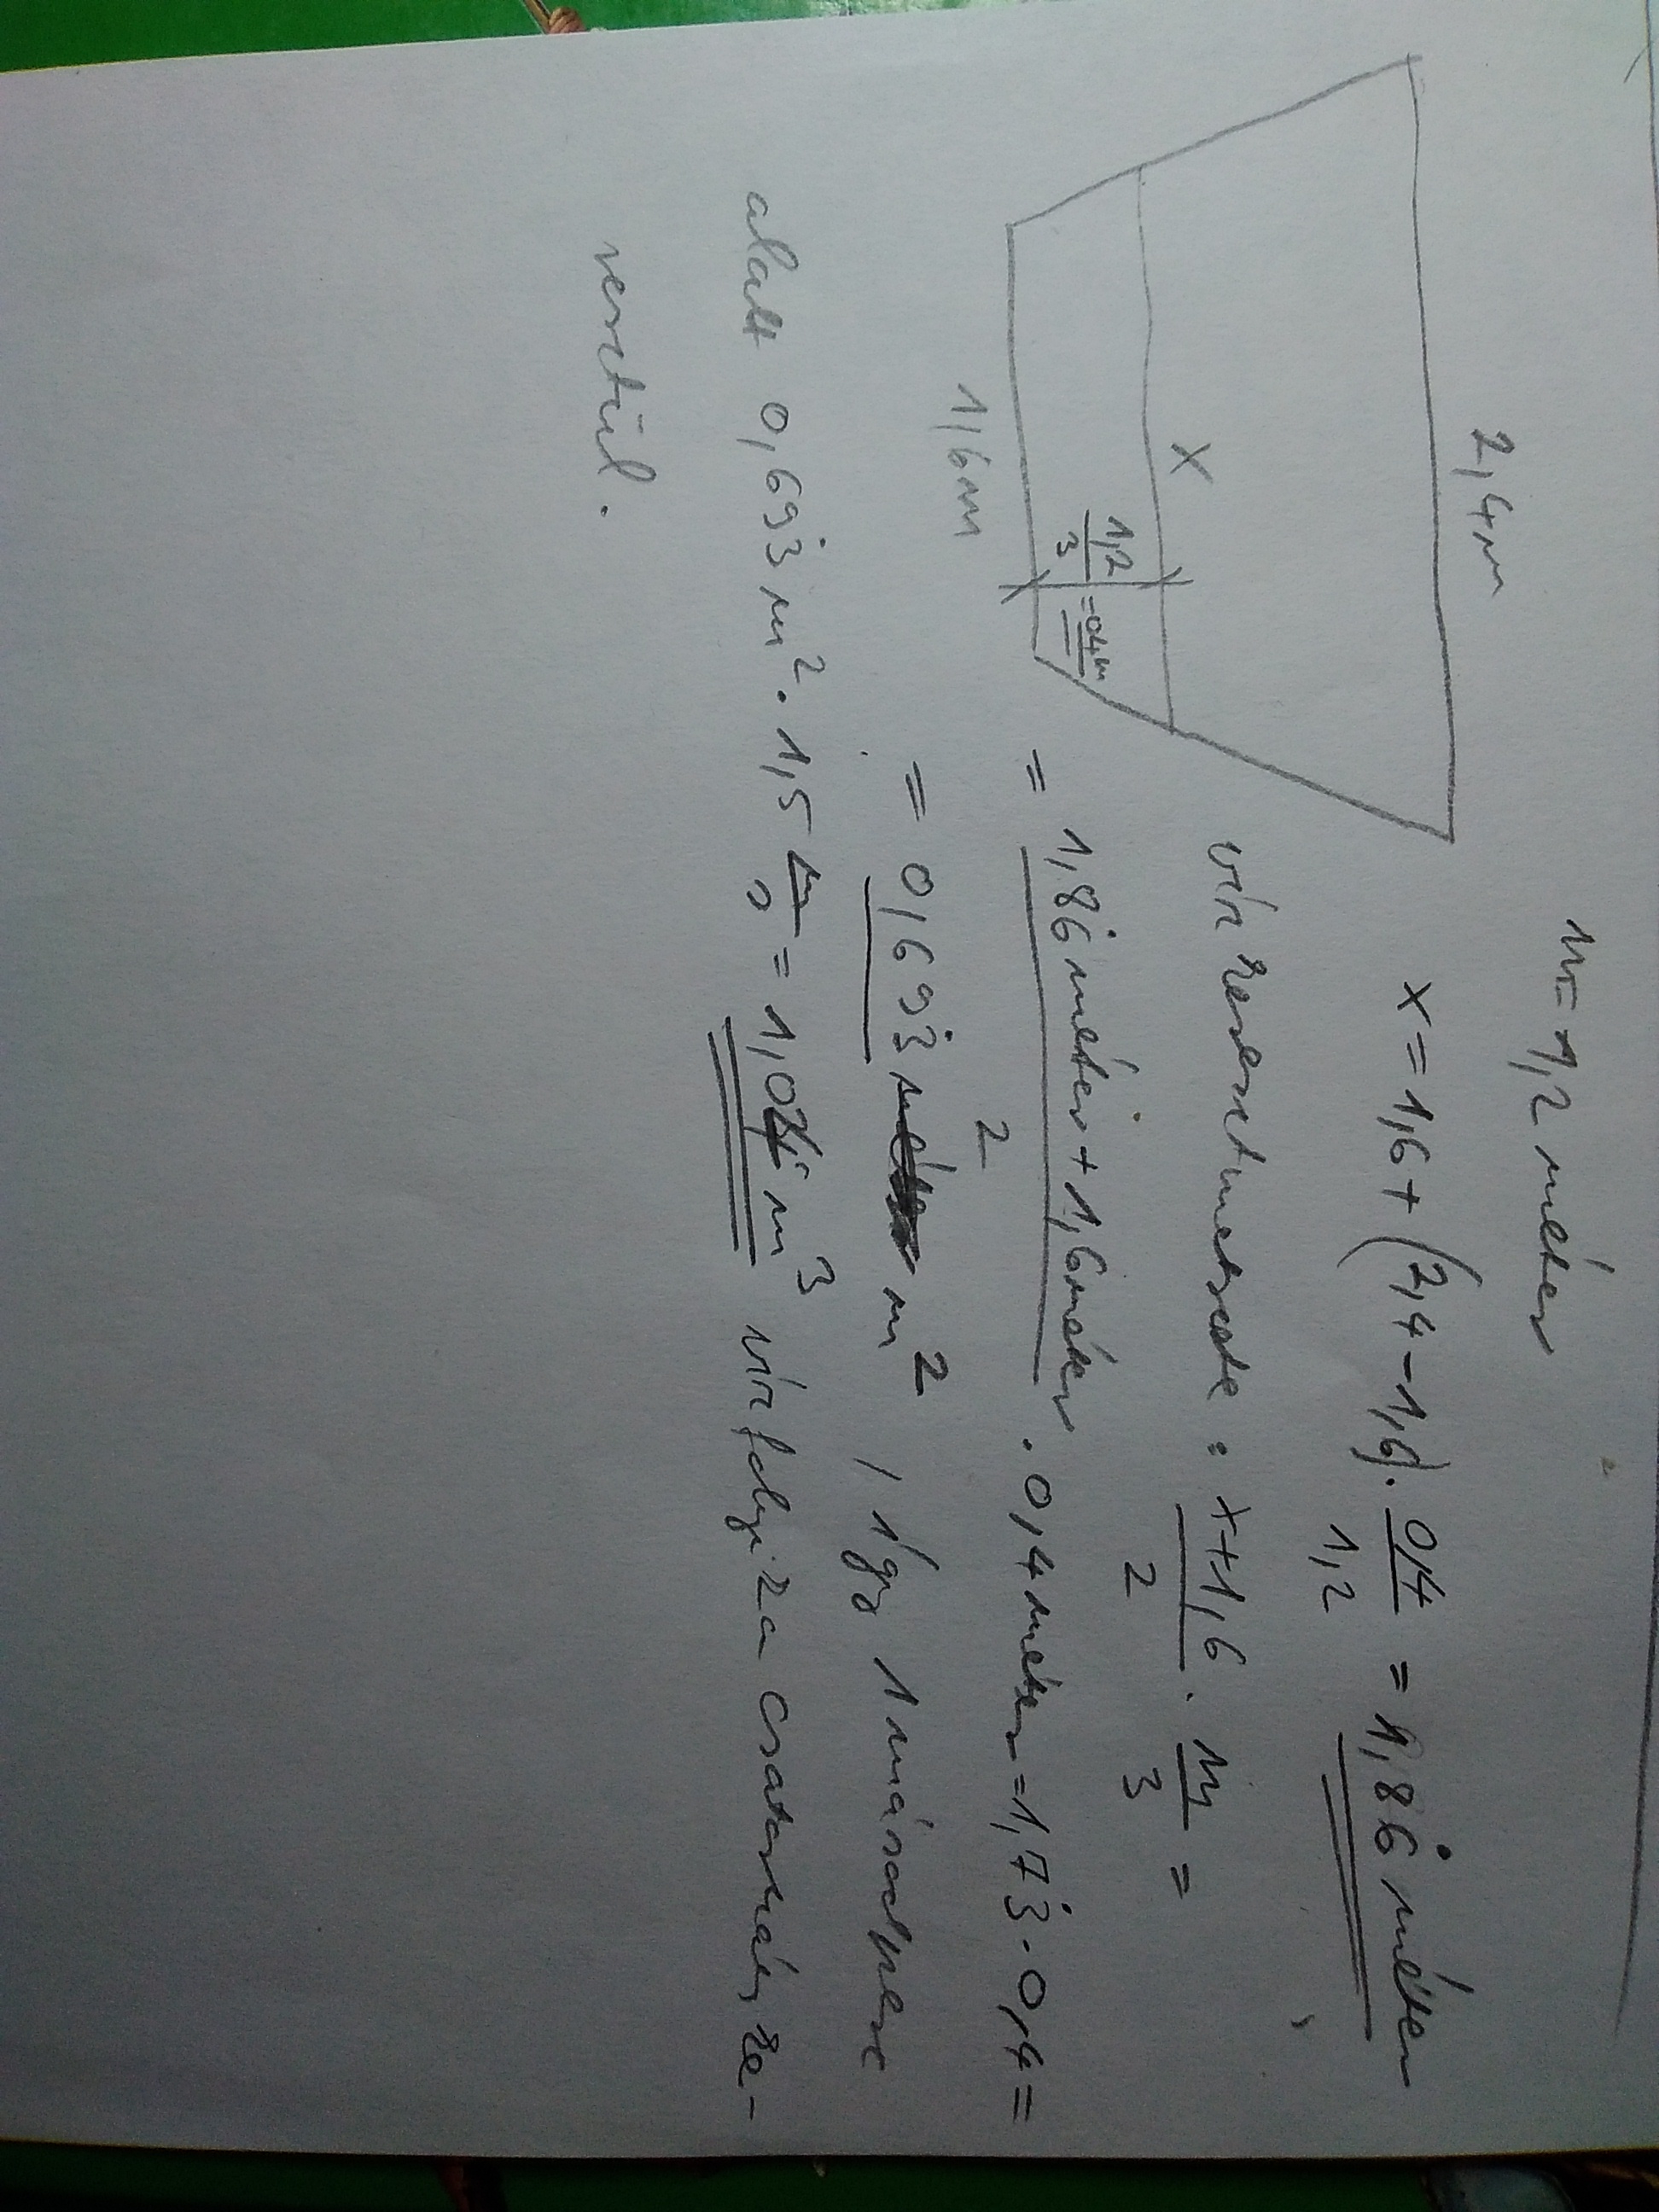 m=1,2 méter
2,4m
x=1,6+(2,4-1,6)·0,4/1,2 = 1,86̇ méter
X
1,2/3 =0,4m
1,6m
víz keresztmetszete: x+1,6/2 · m/3 =
= 1,86̇ méter+1,6méter/2 · 0,4méter=1,73̇·0,4=
= 0,693̇ m², így 1 másodperc
alatt 0,693̇ m²·1,5 m/s = 1,04 m³ víz folyik a csatornán ke-
resztül.